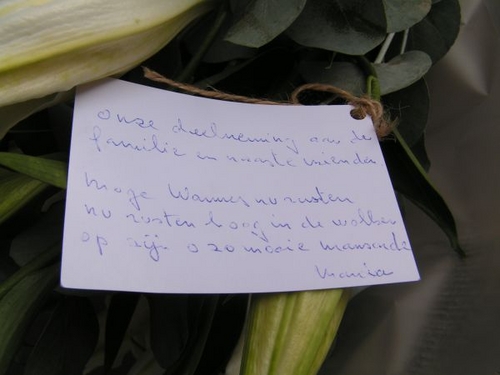 onze deelneming aan de
familie en naaste vrienden
moge Wannes nu rusten
nu rusten hoog in de wolken
op zijn o zo mooie
Maria